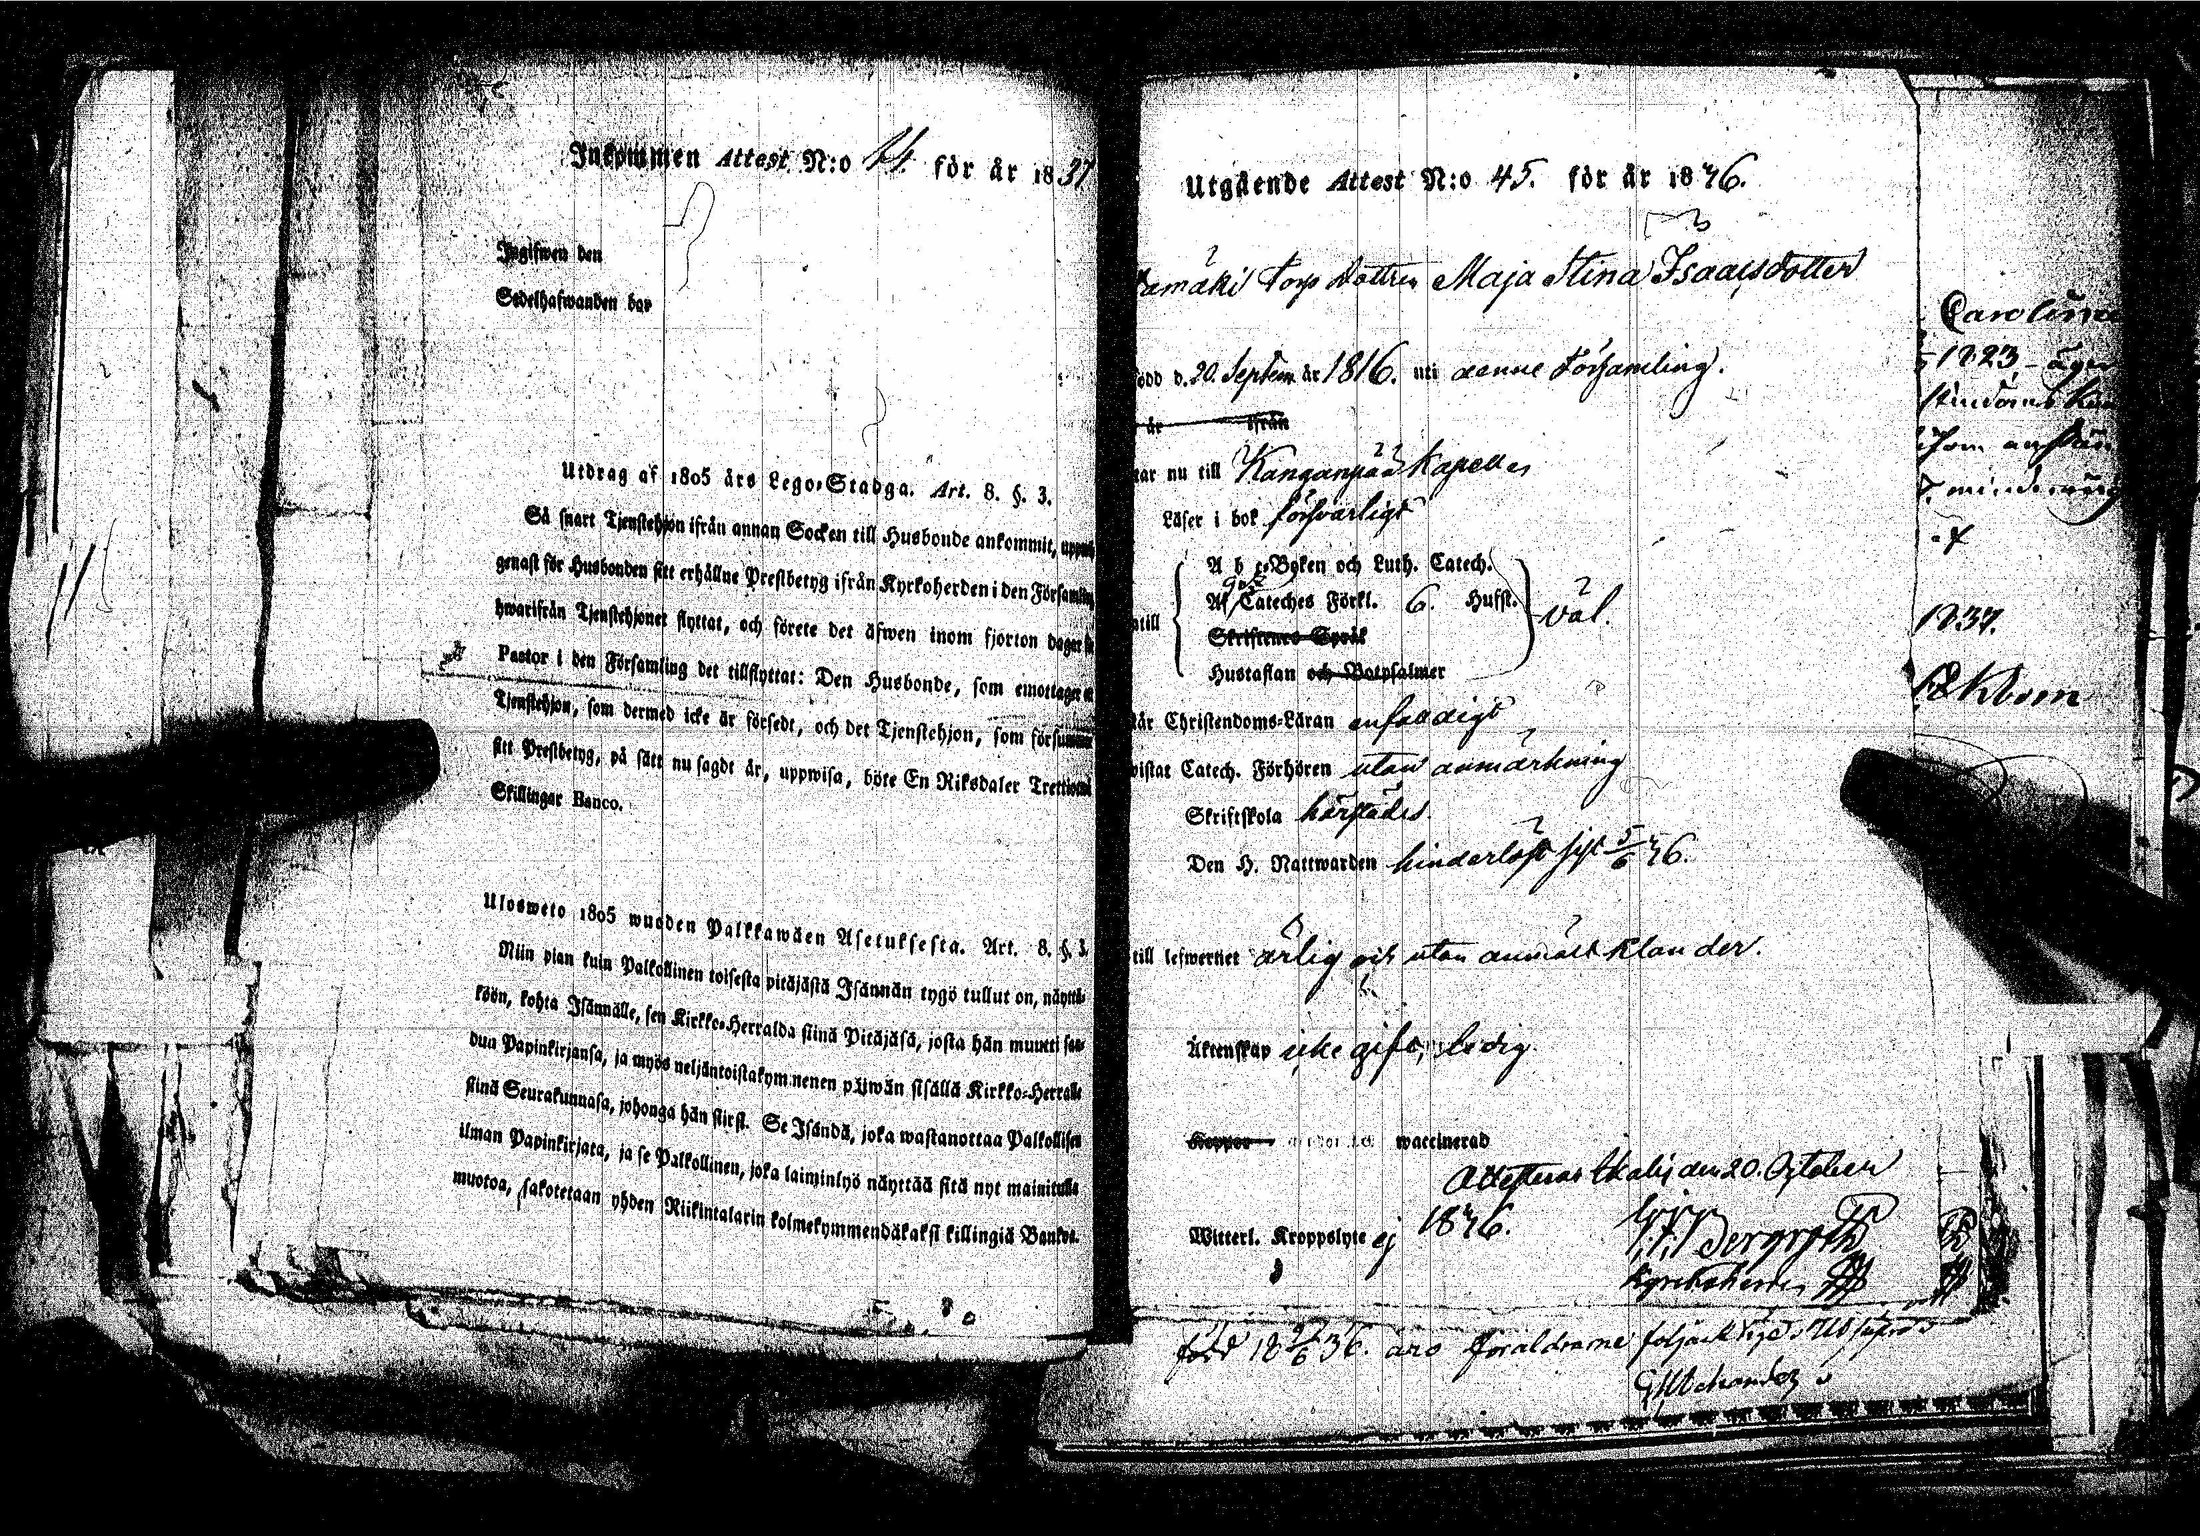 Inkommen Attest N:o för år 1837
Ingifwen den
Sedelhafwanden bor
Utdrag af 1805 års Lego-Stadga. Art. 8. §. 3.
Så snart Tjenstehjon ifrån annan Socken till Husbonde ankommit,
genast för Husbonden sitt erhållne Prestbetyg ifrån Kyrkoherden i den
hwarifrån Tjenstehjonet flyttat, och förete det äfwen inom fjorton dagar
Pastor i den Församling det tillflyttat: Den Husbonde, som emottager
Tjenstehjon, som dermed icke är försedt, och det Tjenstehjon, som
sitt Prestbetyg, på sätt nu sagdt är, uppwisa, böte En Riksdaler
Skillingar Banco.
Ulosweto 1805 wuoden Palkkawäen Asetuksesta. Art. 8. §. 3.
Niin pian kuin Palkollinen toisesta pitäjästä Isännän tygö tullut on, näyttä-
köön, kohta Isännälle, sen Kirkko-Herralda siinä Pitäjäsä, josta hän muutti saa-
dun Papinkirjansa, ja myös neljäntoistakymmenen päiwän sisällä Kirkko-Herralle
siinä Seurakunnasa, johonga hän siirsi. Se Isändä, joka wastanottaa Palkollisen
ilman Papinkirjata, ja se Palkollinen, joka laiminlyö näyttää sitä nyt mainitulla
muotoa, sakotetaan yhden Riikintalarin kolmekymmendäkaksi killingiä Bankoe.
Utgående Attest N:o 45. för år 1846.
Torp dottren Maja Stina Isaacsdotter
född d. 20. Septem. år 1816. uti denne Församling.
år ifrån
nu till Kanganpää Kapell
Läser i bok försvarligt
A b c-Boken och Luth. Catech.
Af Cateches Förkl. 6. Hufst.
Skriftenes Språk
Hustaflan och Botpsalmer
väl.
Christendoms-Läran enfaldigt
Catech. Förhören utan anmärkning
Skriftskola härstädes.
Den H. Nattwarden hinderlöst sist 5/6 46.
till lefwernet ärlig och utan anmält klander.
Äktenskap icke gift, ledig.
Koppor waccinerad
Attesteras Ikalis den 20. October
1846.
Witterl. Kroppslyte ej
Bergroth
Kyrkoherde
född 18 36. äro föräldrarne
Carolina
1823 äger
1837.
Ekbom